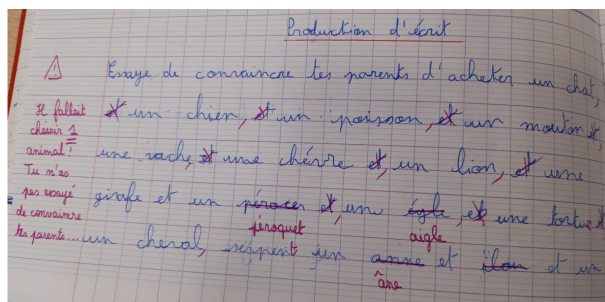 Production d'écrit
Essaye de convaincre tes parents d'acheter un chat,
et un chien, et un poisson, et un mouton et,
une vache, et une chévre et, un lion, et une
girafe et un pérocer et, une égle, et une tortue et
péroquet aigle
un cheval, serpent un anne et et un
âne
Il fallait
choisir 1
animal !
Tu n'as
pas essayé
de convaincre
tes parents...